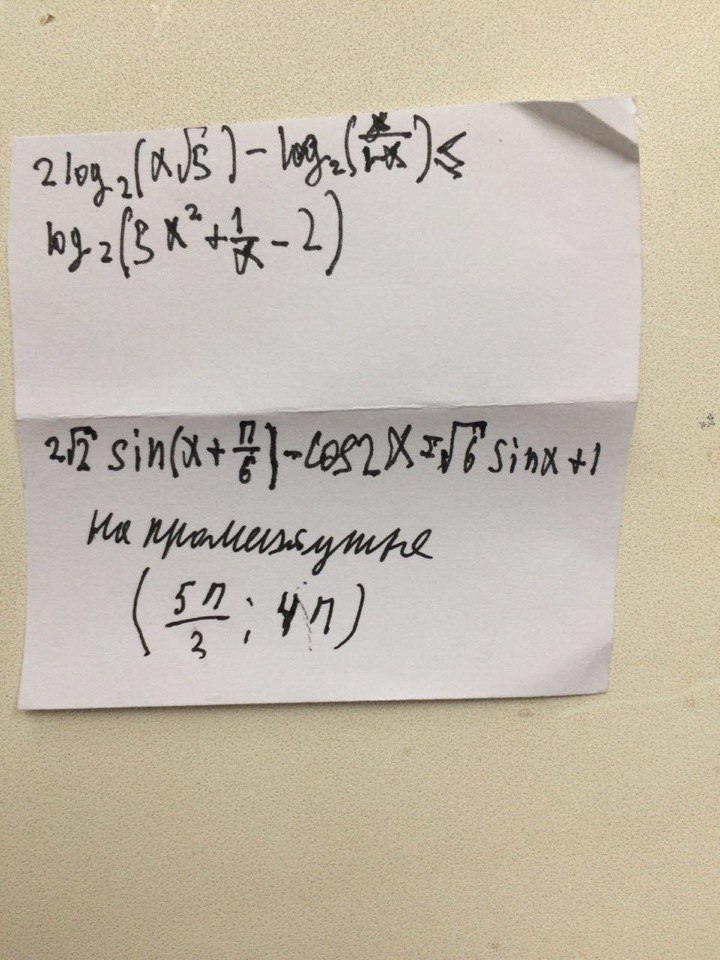 2log₂(x√5) - log₂(x/1-x) ≤
log₂(5x² + 1/x - 2)
2√2 sin(x + π/6) - cos2x = √6 sinx + 1
на промежутке
(5π/3; 4π)